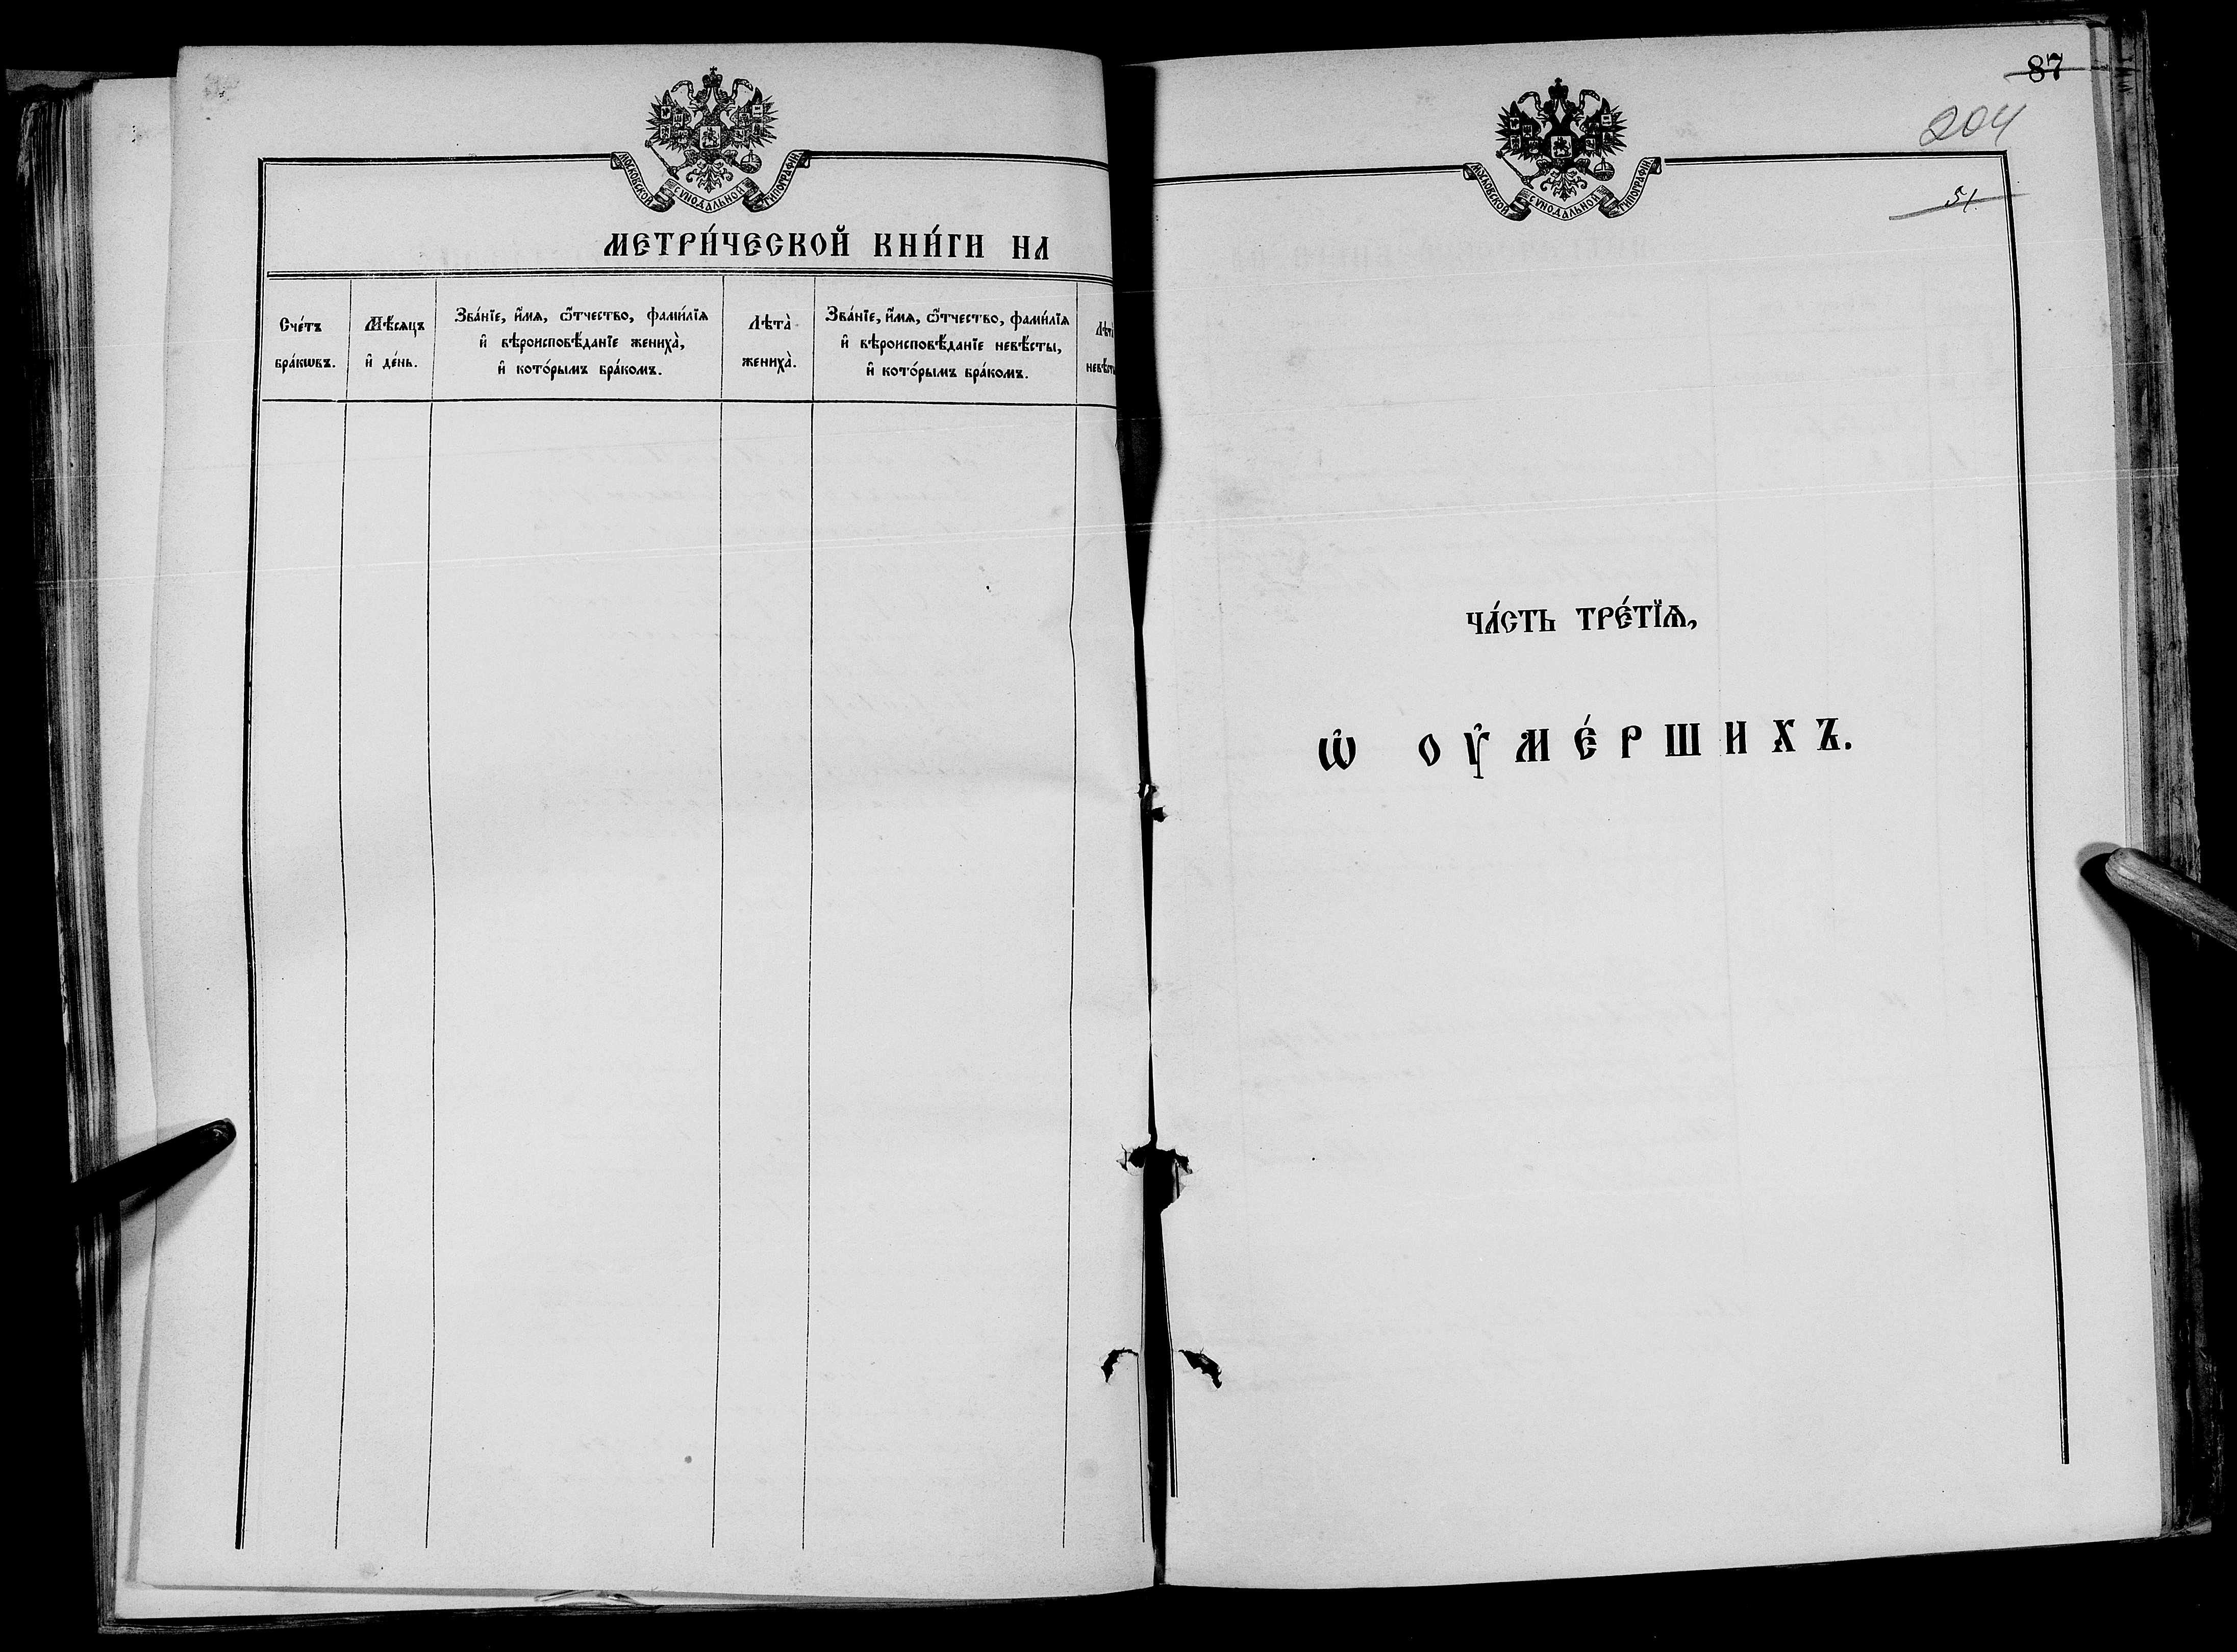 МОСКОВСКОЙ СѴНОДАЛЬНОЙ ТИПОГРАФІИ.
МЕТРИ́ЧЕСКОЙ КНИ́ГИ НА
Сче́тъ бра́кѡвъ.
Мѣ́сяцъ и҆ де́нь.
Зва́нїе, и҆́мя, ѻ҆́тчество, фами́лїя
и҆ вѣроисповѣ́данїе жениха̀,
и҆ кото́рымъ бра́комъ.
Лѣта̀ жениха̀.
Зва́нїе, и҆́мя, ѻ҆́тчество, фами́лїя
и҆ вѣроисповѣ́данїе невѣ́сты,
и҆ кото́рымъ бра́комъ.
Лѣта̀
невѣ́сты
87
204
51.
МОСКОВСКОЙ СѴНОДАЛЬНОЙ ТИПОГРАФІИ.
ЧА́СТЬ ТРЕ́ТЇѦ,
Ѡ҆ ОУ҆МЕ́РШИХЪ.